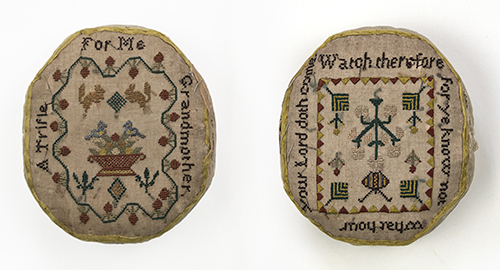 A Trifle
For Me
Grandmother.
Watch therefore
for ye know not
what hour
your Lord doth come